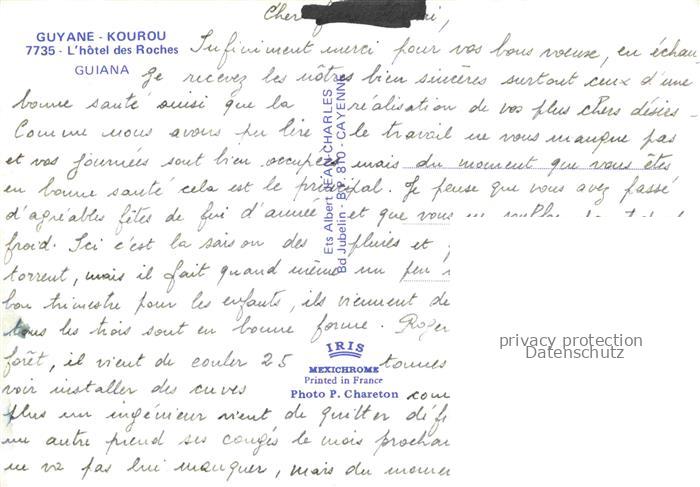 Cher
GUYANE - KOUROU
7735 - L'hôtel des Roches
GUIANA
Infiniment merci pour vos bons voeux, en échan
ge recevez les nôtres bien sincères surtout ceux d'une
bonne santé ainsi que la réalisation de vos plus chers désirs -
Comme nous avons pu lire le travail ne vous manque pas
et vos journées sont bien occupées mais du moment que vous êtes
en bonne santé cela est le principal. Je pense que vous avez passé
d'agréables fêtes de fin d'année et que vous ne
froid. Ici c'est la saison des pluies et
torrent, mais il fait quand même un peu
bon trimestre pour les enfants, ils viennent de
tous les trois sont en bonne forme. Roger
forêt, il vient de couler 25 tonnes
voir installer des cuves com
plus un ingénieur vient de quitter défi
un autre prend ses congés le mois prochai
ne va pas lui manquer, mais du momen
Ets Albert JEAN-CHARLES
Bd Jubelin - B.P. 810 - CAYENNE
IRIS
MEXICHROME
Printed in France
Photo P. Chareton
privacy protection
Datenschutz